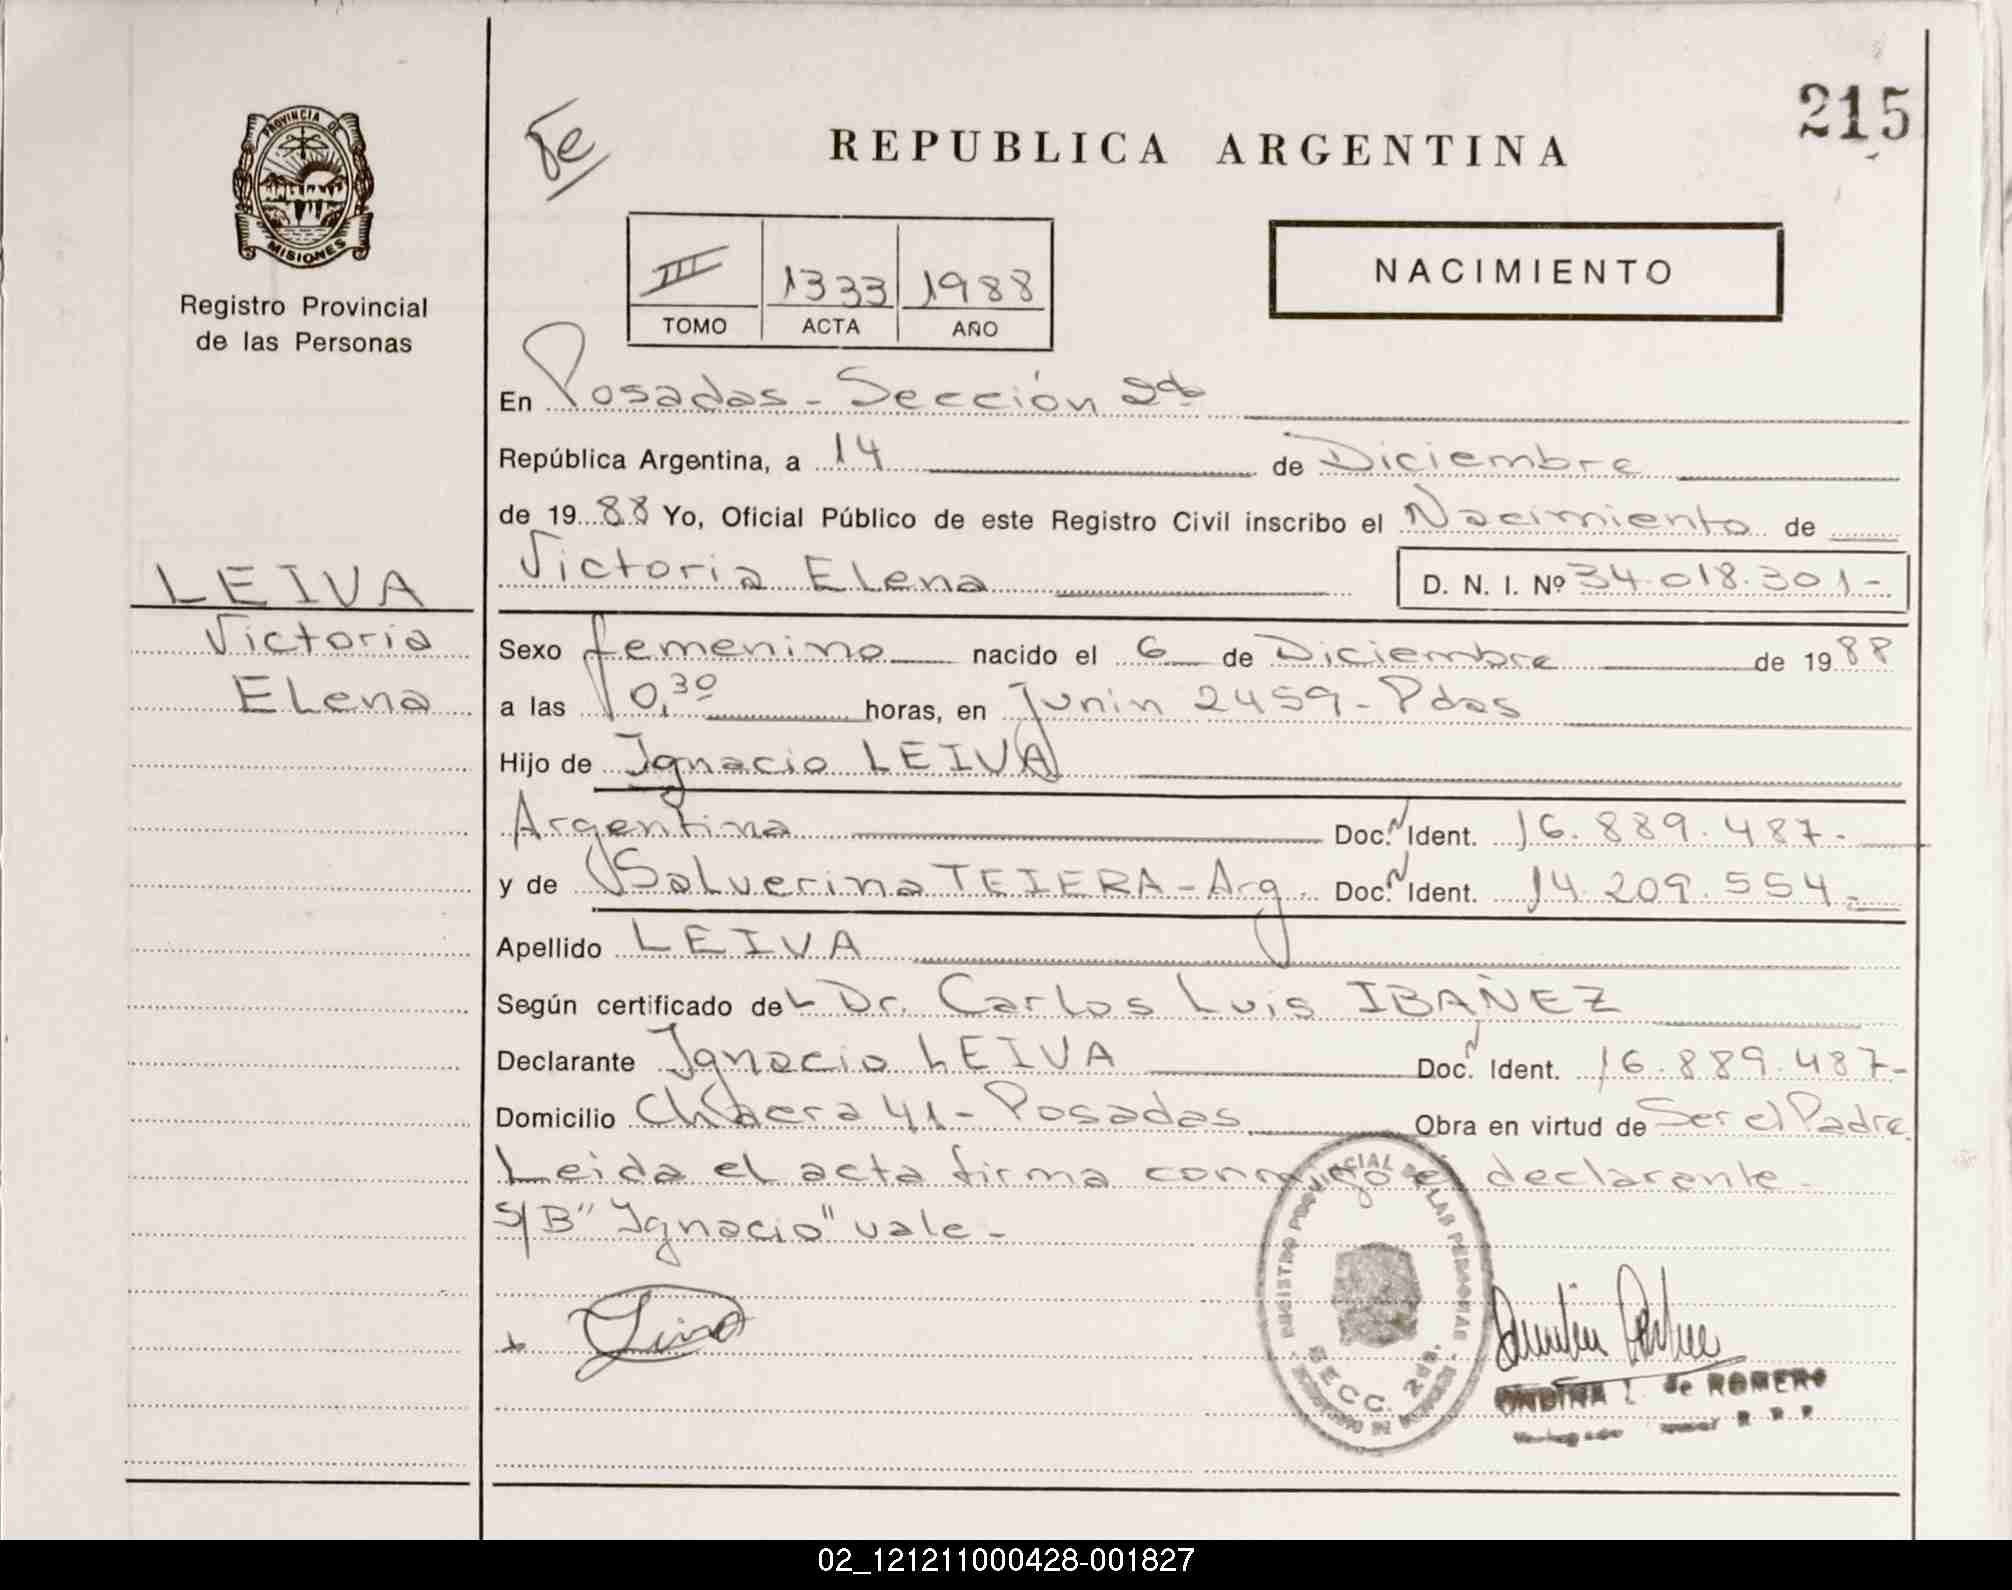 PROVINCIA DE
MISIONES
Registro Provincial
de las Personas
LEIVA
Victoria
Elena
215
REPUBLICA ARGENTINA
III 1333 1988
TOMO ACTA AÑO
NACIMIENTO
En Posadas - Sección 2da
República Argentina, a 14 de Diciembre
de 1988 Yo, Oficial Público de este Registro Civil inscribo el Nacimiento de
Victoria Elena D. N. I. Nº 34.018.301-
Sexo femenino nacido el 6 de Diciembre de 1988
a las 10,30 horas, en Junin 2459 - Pdas
Hijo de Ignacio LEIVA
Argentina Doc. Ident. 16.889.487-
y de Salverina TEIERA - Arg. Doc. Ident. 14.209.554-
Apellido LEIVA
Según certificado del Dr. Carlos Luis IBAÑEZ
Declarante Ignacio LEIVA Doc. Ident. 16.889.487-
Domicilio Chacra 41 - Posadas Obra en virtud de Ser el Padre
Leida el acta firma conmigo el declarante -
S/B "Ignacio" vale -
REGISTRO PROVINCIAL DE LAS PERSONAS
SECC. 2da.
de ROMERO